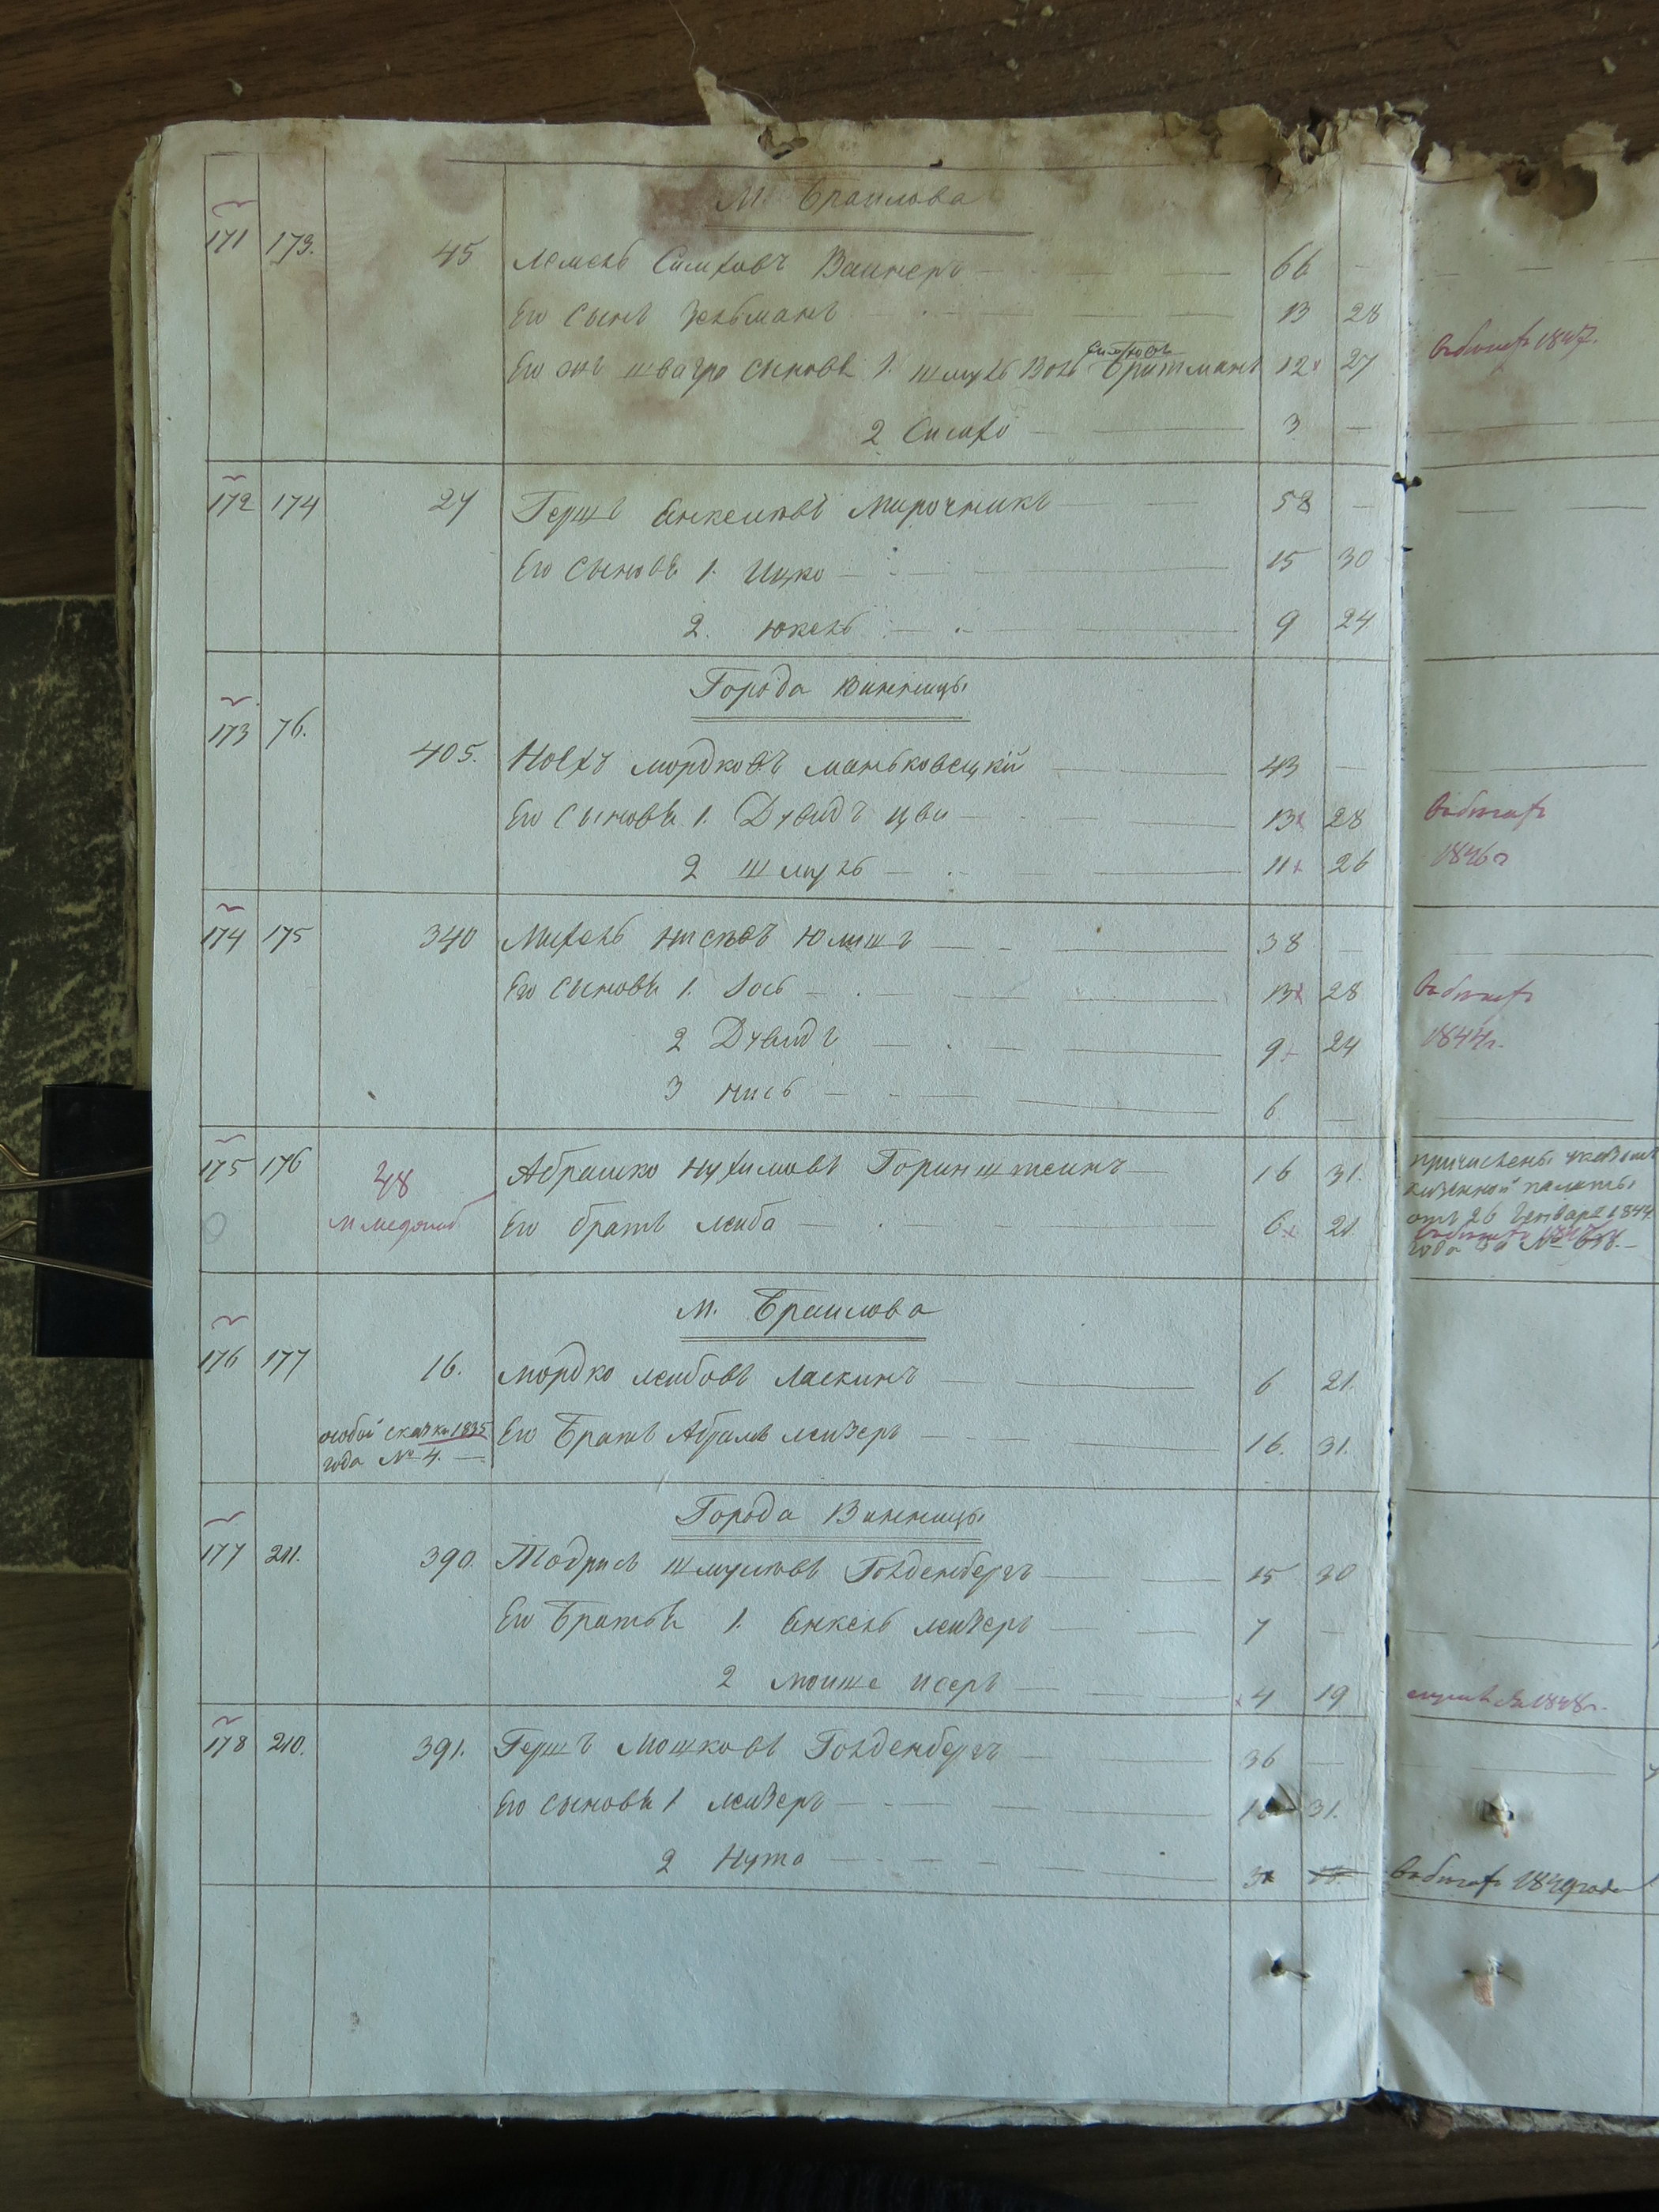 М. Браилова
171 173. 45 Лемель Симховъ Ваинеръ 66 —
Его сынъ Зельманъ 13 28
Симховъ
Его же швагра сыновья 1. Шмуль Воль Бритманъ 12 27 1847.
2 Симхо 3 —
172 174 27 Гершъ Янкелювъ Мирочникъ 58 —
Его сыновья 1. Ицко 15 30
2. Юкель 9 24
Города Винницы
173 76. 405. Ноехъ Мордковъ Маньковецкій 43 —
Его сыновья 1. Дувидъ Цви 13 28
2 Шмуль 11 26 1846 г
174 175 340 Михель Нисювъ Юлишъ 38 —
Его сыновья 1. Іось 13 28
2 Дувидъ 9 24 1844 г.
3 Нись 6 —
175 176 48 Абрамко Нухимовъ Горинштеинъ 16 31. причислены указомъ
казенной палаты
м Меджиб Его братъ Леиба 6 21 отъ 26 Генваря 1844
года за №
М. Браилова
176 177 16. Мордко Леибовъ Ласкинъ 6 21.
особой сказки 1835 Его Братъ Абрамъ Леизеръ 16. 31.
года № 4.
Города Винницы
177 211. 390. Тодрисъ Шмулювъ Гольденбергъ 15 30
Его Братья 1. Янкель Леизеръ 7 —
2 Моише Исеръ 4 19 1848 г.
178 210. 391. Гершъ Мошковъ Гольденбергъ 36 —
Его сыновья 1 Леизеръ 31.
2 Нута 3 1849 года